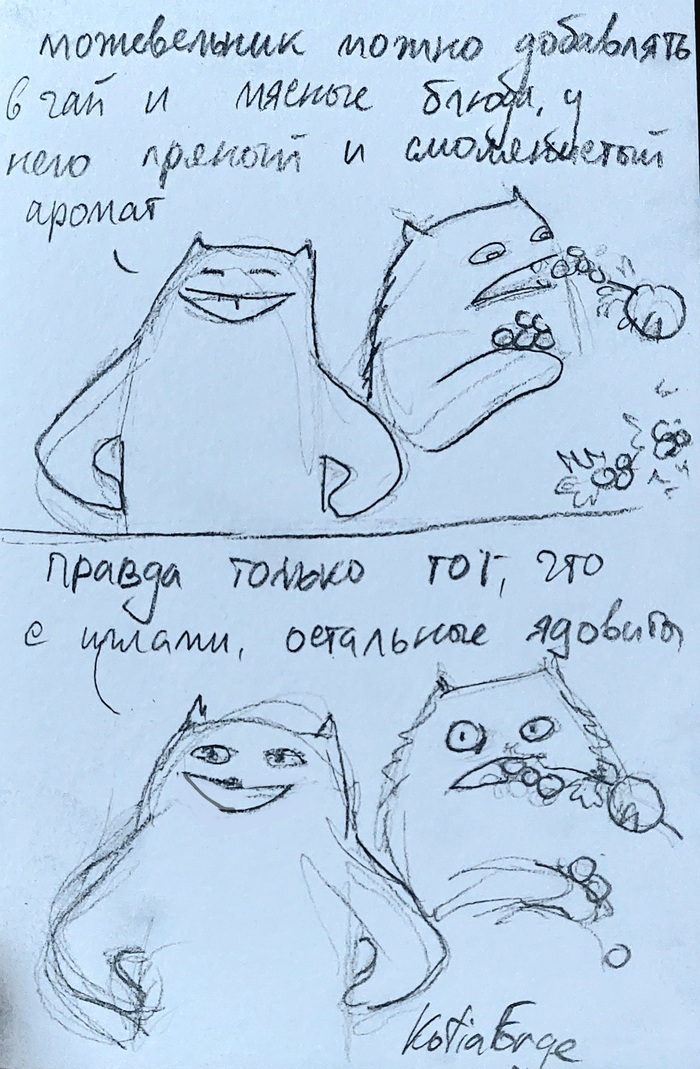 можевельник можно добавлять
в чай и мясные блюда, у
него пряный и смолянистый
аромат
правда только тот, что
с иглами, остальные ядовиты
KotiaForge